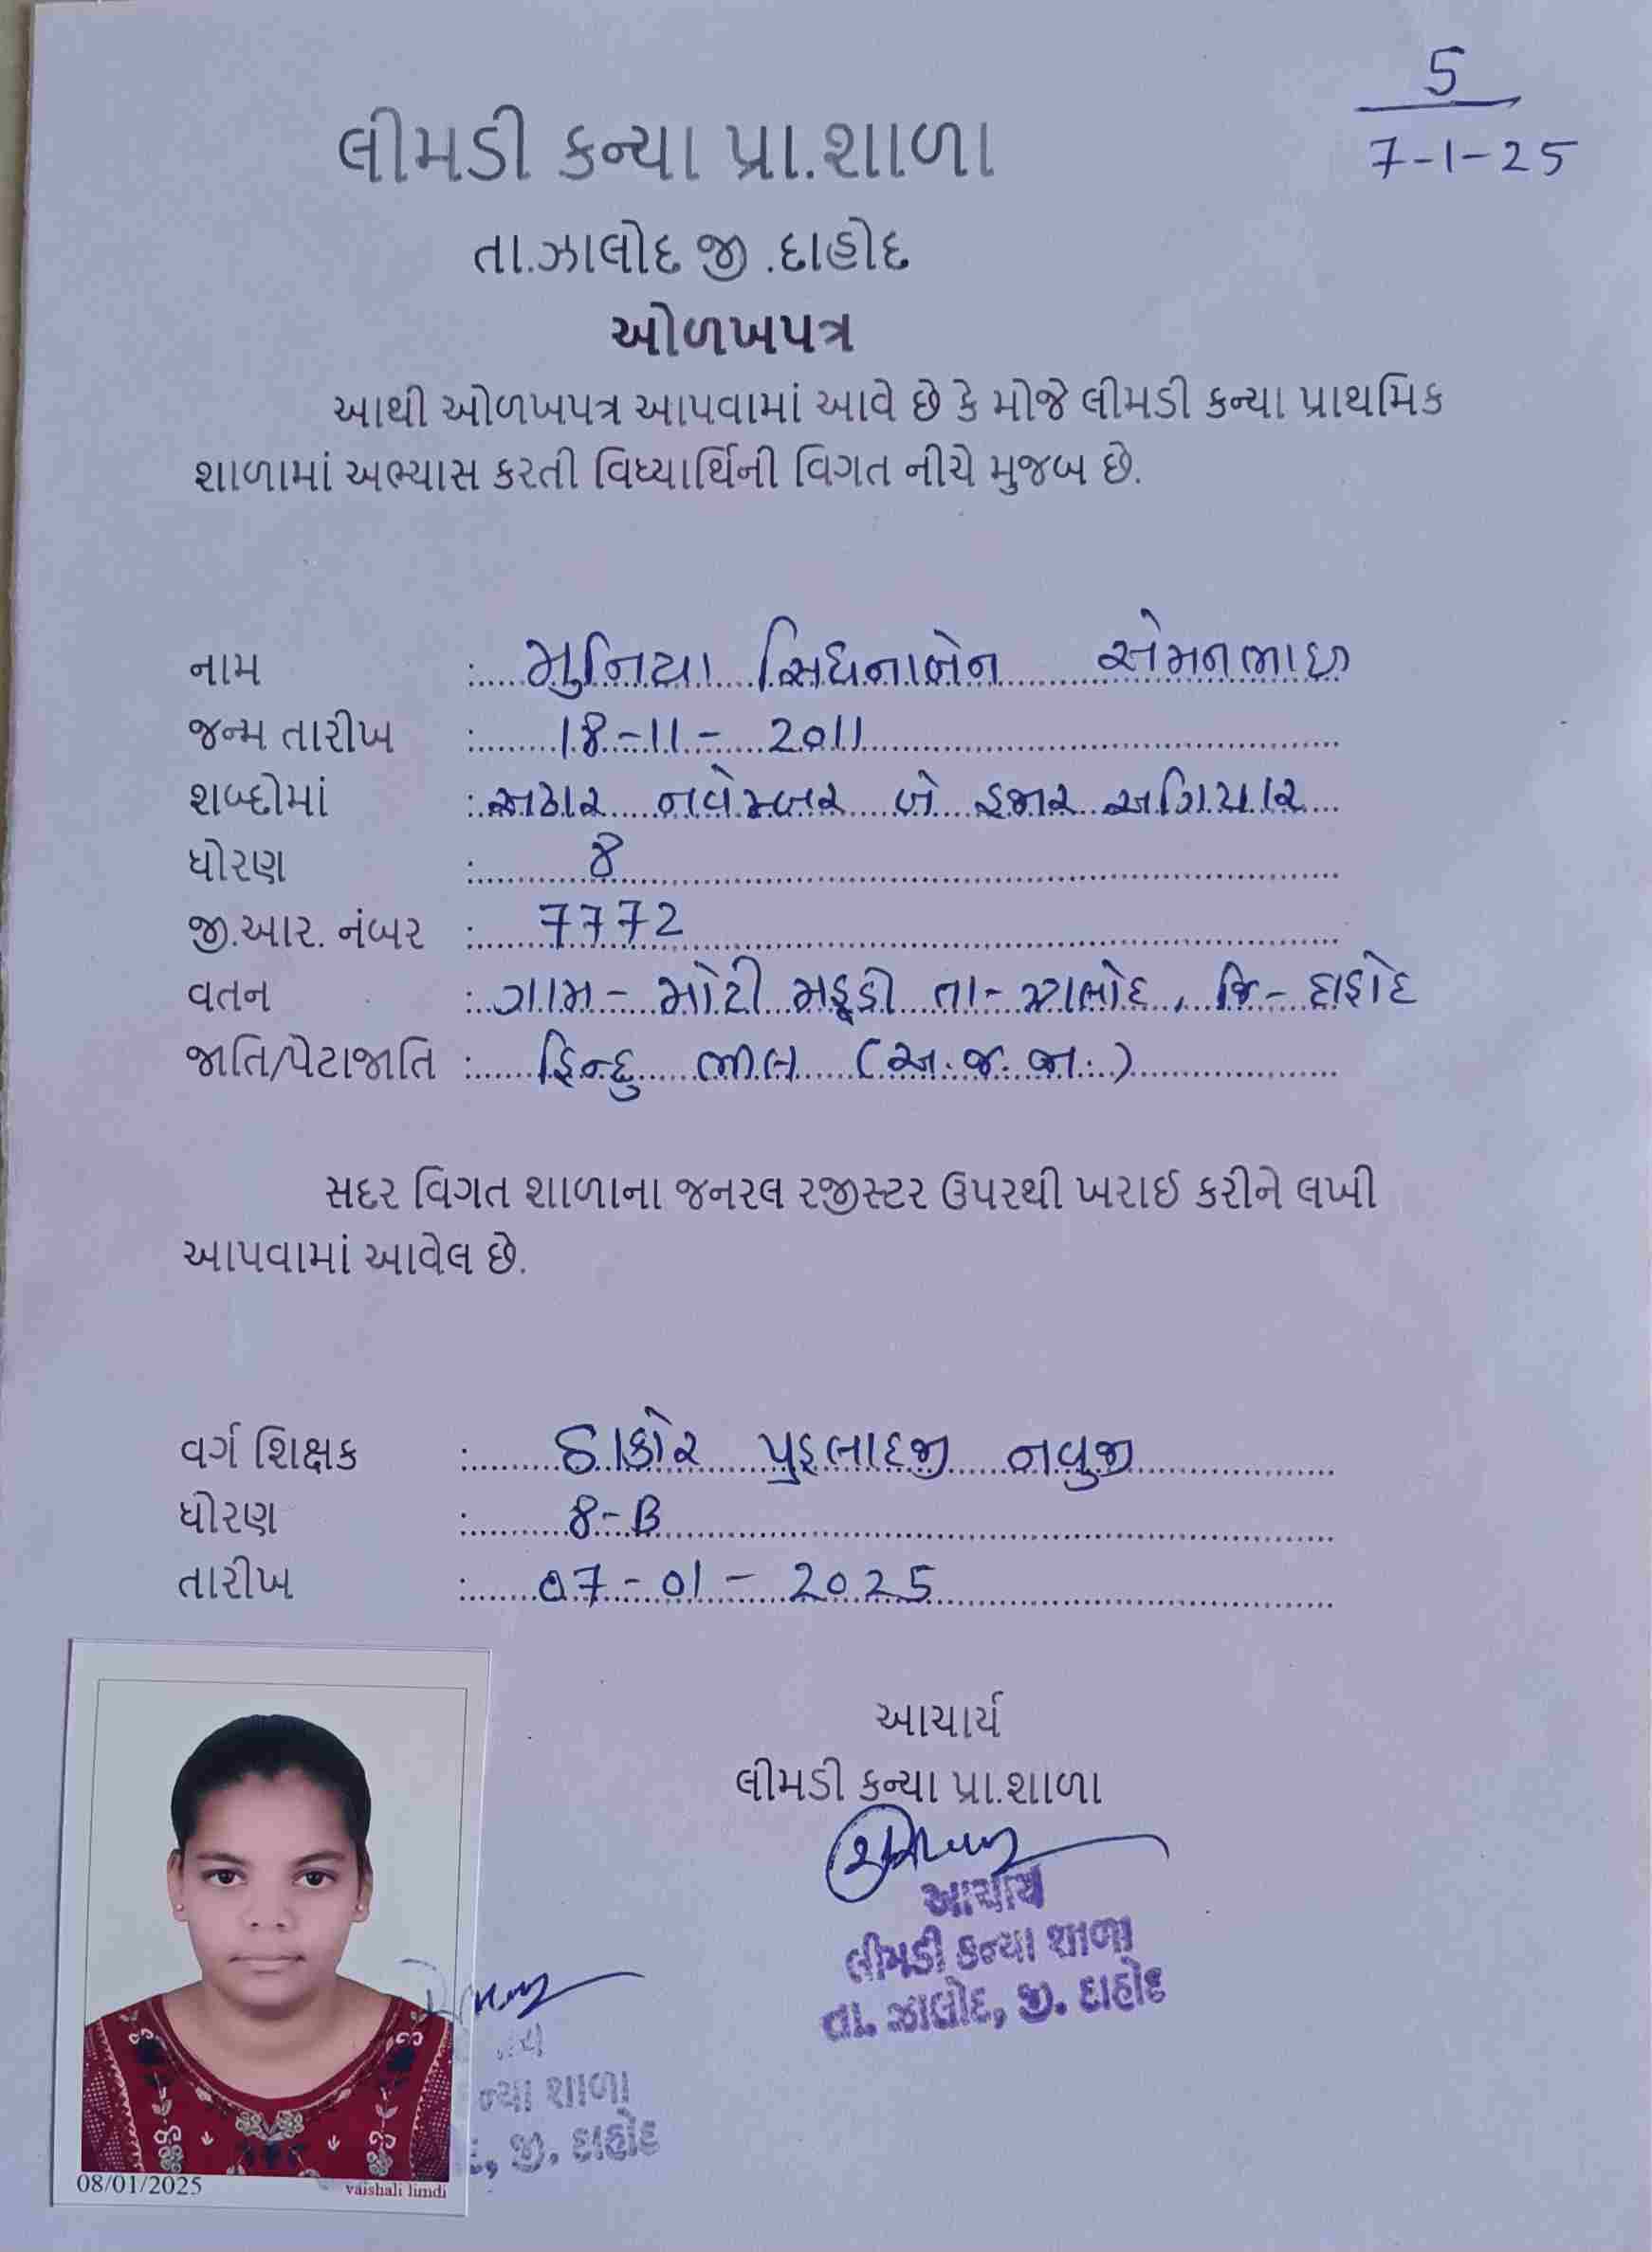 5
7-1-25
લીમડી કન્યા પ્રા.શાળા
તા.ઝાલોદ જી .દાહોદ
ઓળખપત્ર
આથી ઓળખપત્ર આપવામાં આવે છે કે મોજે લીમડી કન્યા પ્રાથમિક
શાળામાં અભ્યાસ કરતી વિધ્યાર્થિની વિગત નીચે મુજબ છે.
નામ : મુનિયા સિધનાબેન સેમનભાઇ
જન્મ તારીખ : 18-11-2011
શબ્દોમાં : અઢાર નવેમ્બર બે હજાર અગિયાર
ધોરણ : 8
જી.આર. નંબર : 7772
વતન : ગ્રામ- મોટી મહૂડી તા- ઝાલોદ, જિ- દાહોદ
જાતિ/પેટાજાતિ : હિન્દુ ભીલ (અ.જ.જા.)
સદર વિગત શાળાના જનરલ રજીસ્ટર ઉપરથી ખરાઈ કરીને લખી
આપવામાં આવેલ છે.
વર્ગ શિક્ષક : ઠાકોર પ્રહલાદજી નવુજી
ધોરણ : 8-B
તારીખ : 07-01-2025
આચાર્ય
લીમડી કન્યા પ્રા.શાળા
આચાર્ય
લીમડી કન્યા શાળા
તા. ઝાલોદ, જી. દાહોદ
ન્યા શાળા
દ, જી. દાહોદ
08/01/2025 vaishali limdi